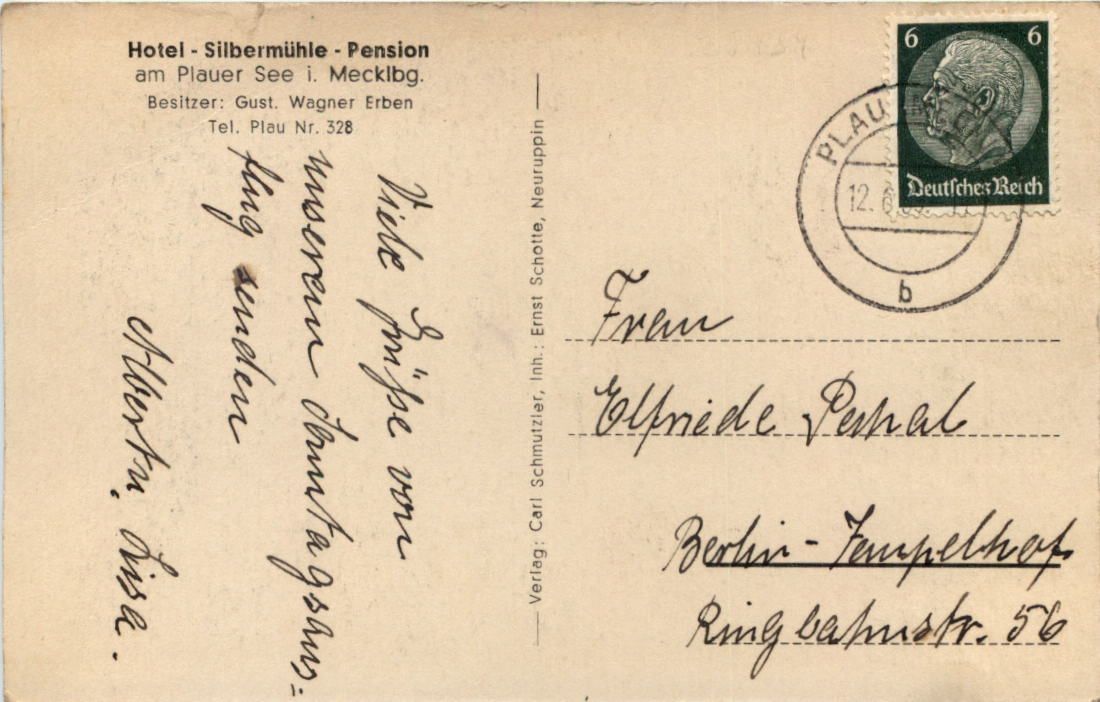 Hotel - Silbermühle - Pension
am Plauer See i. Mecklbg.
Besitzer: Gust. Wagner Erben
Tel. Plau Nr. 328
Viele Grüße von
unserem Sonntagsaus=
flug senden
Albert u. Lisa.
Verlag: Carl Schmutzler, Inh.: Ernst Schotte, Neuruppin
6 6
Deutsches Reich
PLAU
12. 6.
b
Frau
Elfriede
Berlin - Tempelhof
Ringbahnstr. 56